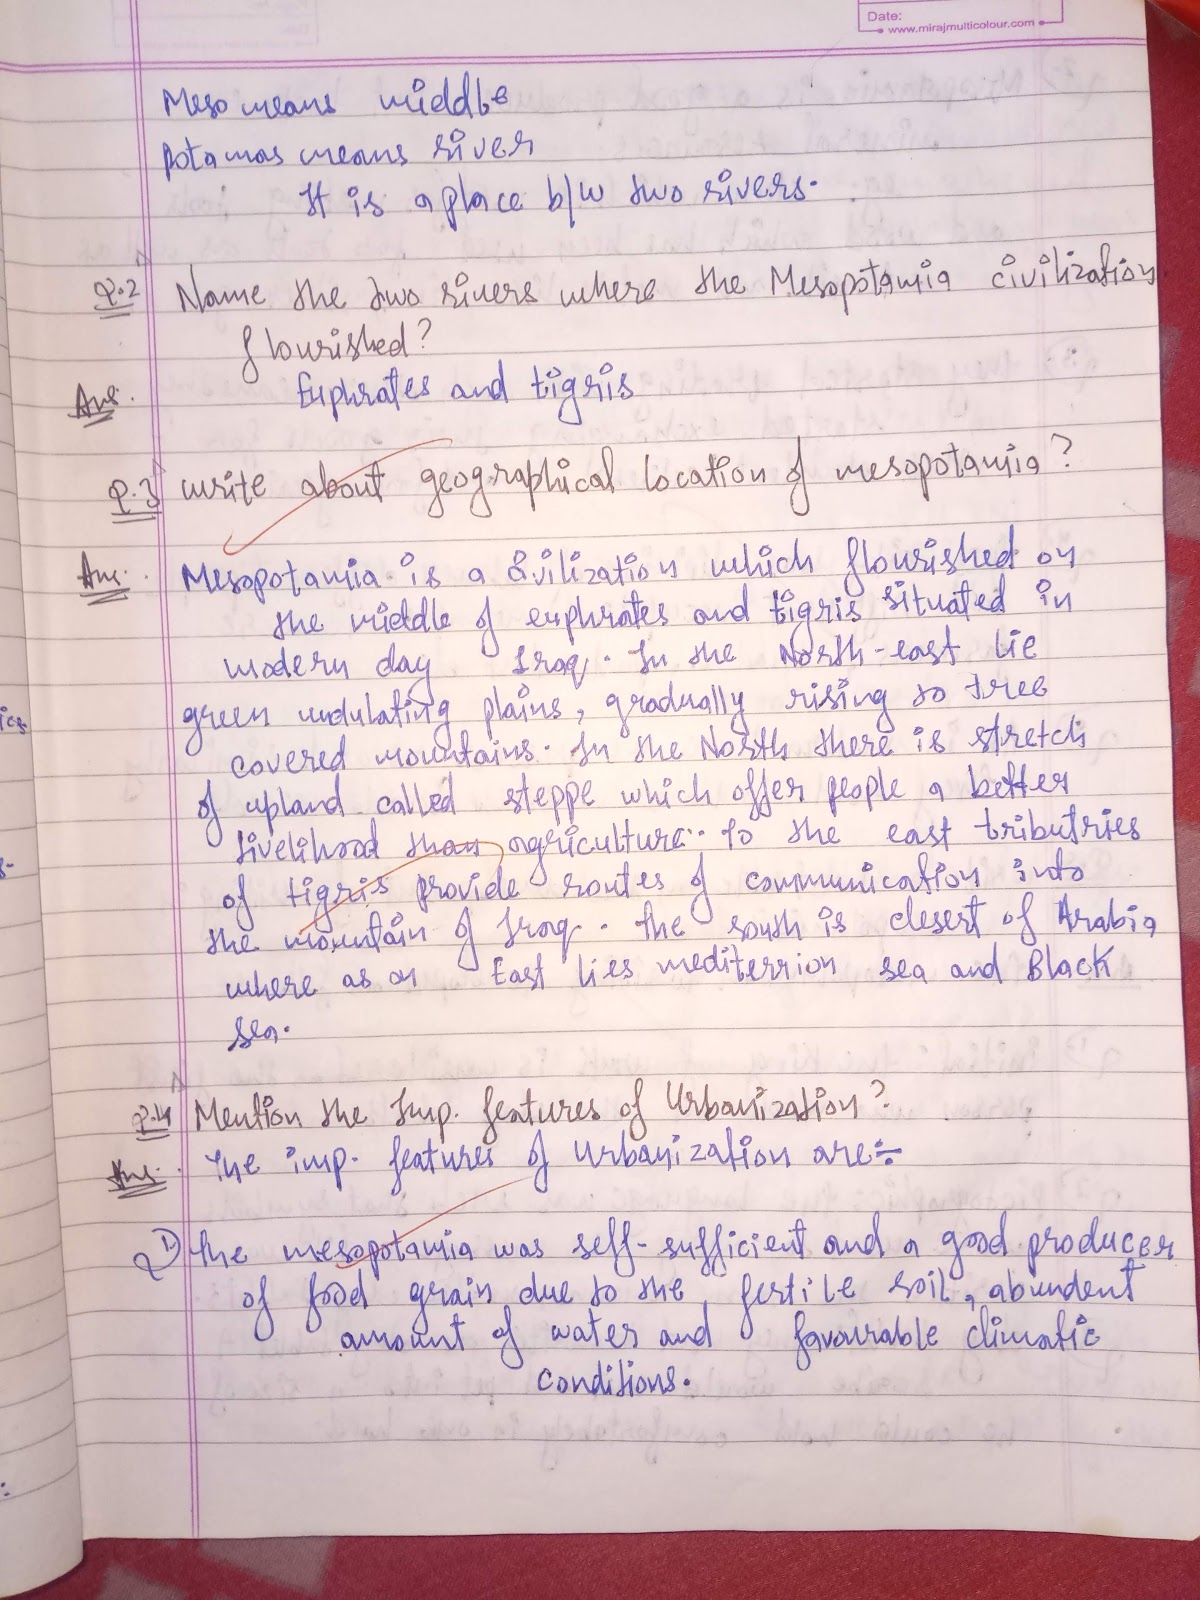 Date:
www.mirajmulticolour.com
Meso means middle
potamas means river
It is a place b/w two rivers.
Q.2 Name the two rivers where the Mesopotamia civilization
flourished?
Ans. Euphrates and tigris
Q.3 write about geographical location of mesopotamia?
Ans. Mesopotamia is a civilization which flourished on
the middle of euphrates and tigris situated in
modern day Iraq. In the North-east lie
green undulating plains, gradually rising to tree
covered mountains. In the North there is stretch
of upland called steppe which offer people a better
livelihood than agriculture. To the east tributries
of tigris provide routes of communication into
the mountain of Iraq. The south is desert of Arabia
where as on East lies mediterrion sea and Black
sea.
Q.4 Mention the Imp. features of Urbanization?
Ans. The imp. features of Urbanization are:-
1) The mesopotamia was self-sufficient and a good producer
of food grain due to the fertile soil, abundent
amount of water and favourable climatic
conditions.